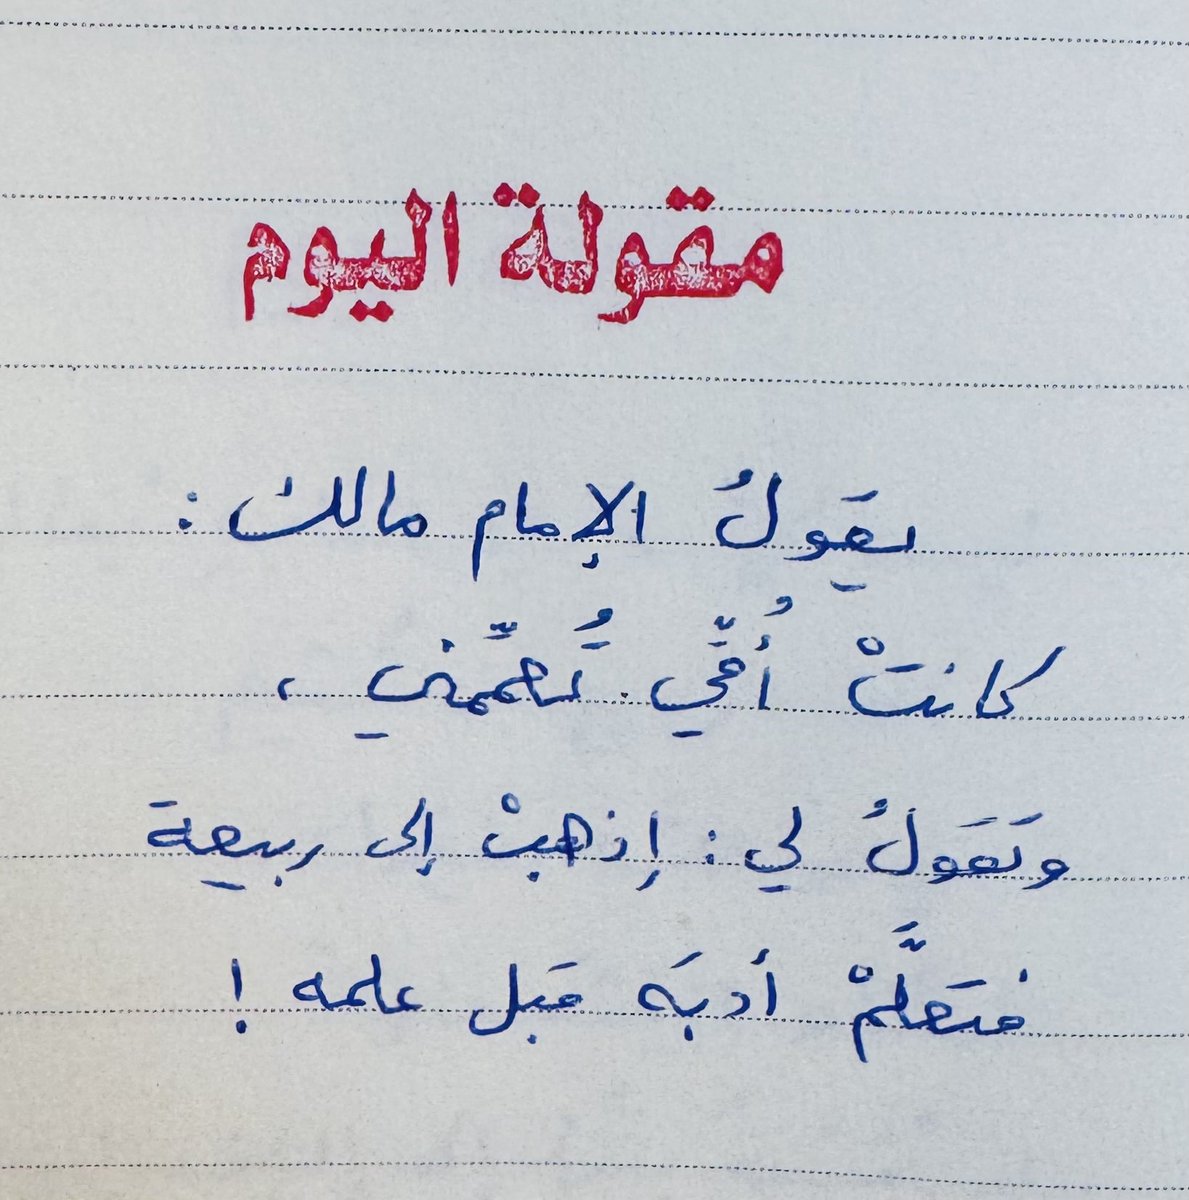 مقولة اليوم
يقَولُ الإمام مالك :
كانتْ أُمِّي تُعمِّمني ،
وتَقَولُ لي : إذهبْ إلى ربيعة
فتعَلَّمْ أدبَه قبل علمه !